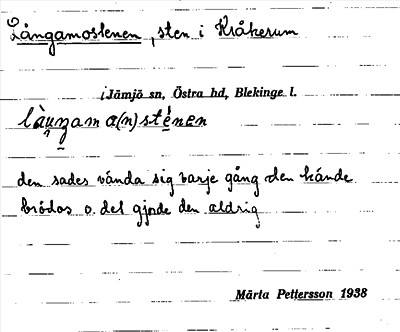 Långamostenen, sten i Kråkerum
i Jämjö sn, Östra hd, Blekinge l.
làu̯nzam a(n) sténen
den sades vända sig varje gång den kände
brödos o. det gjorde den aldrig
Märta Pettersson 1938